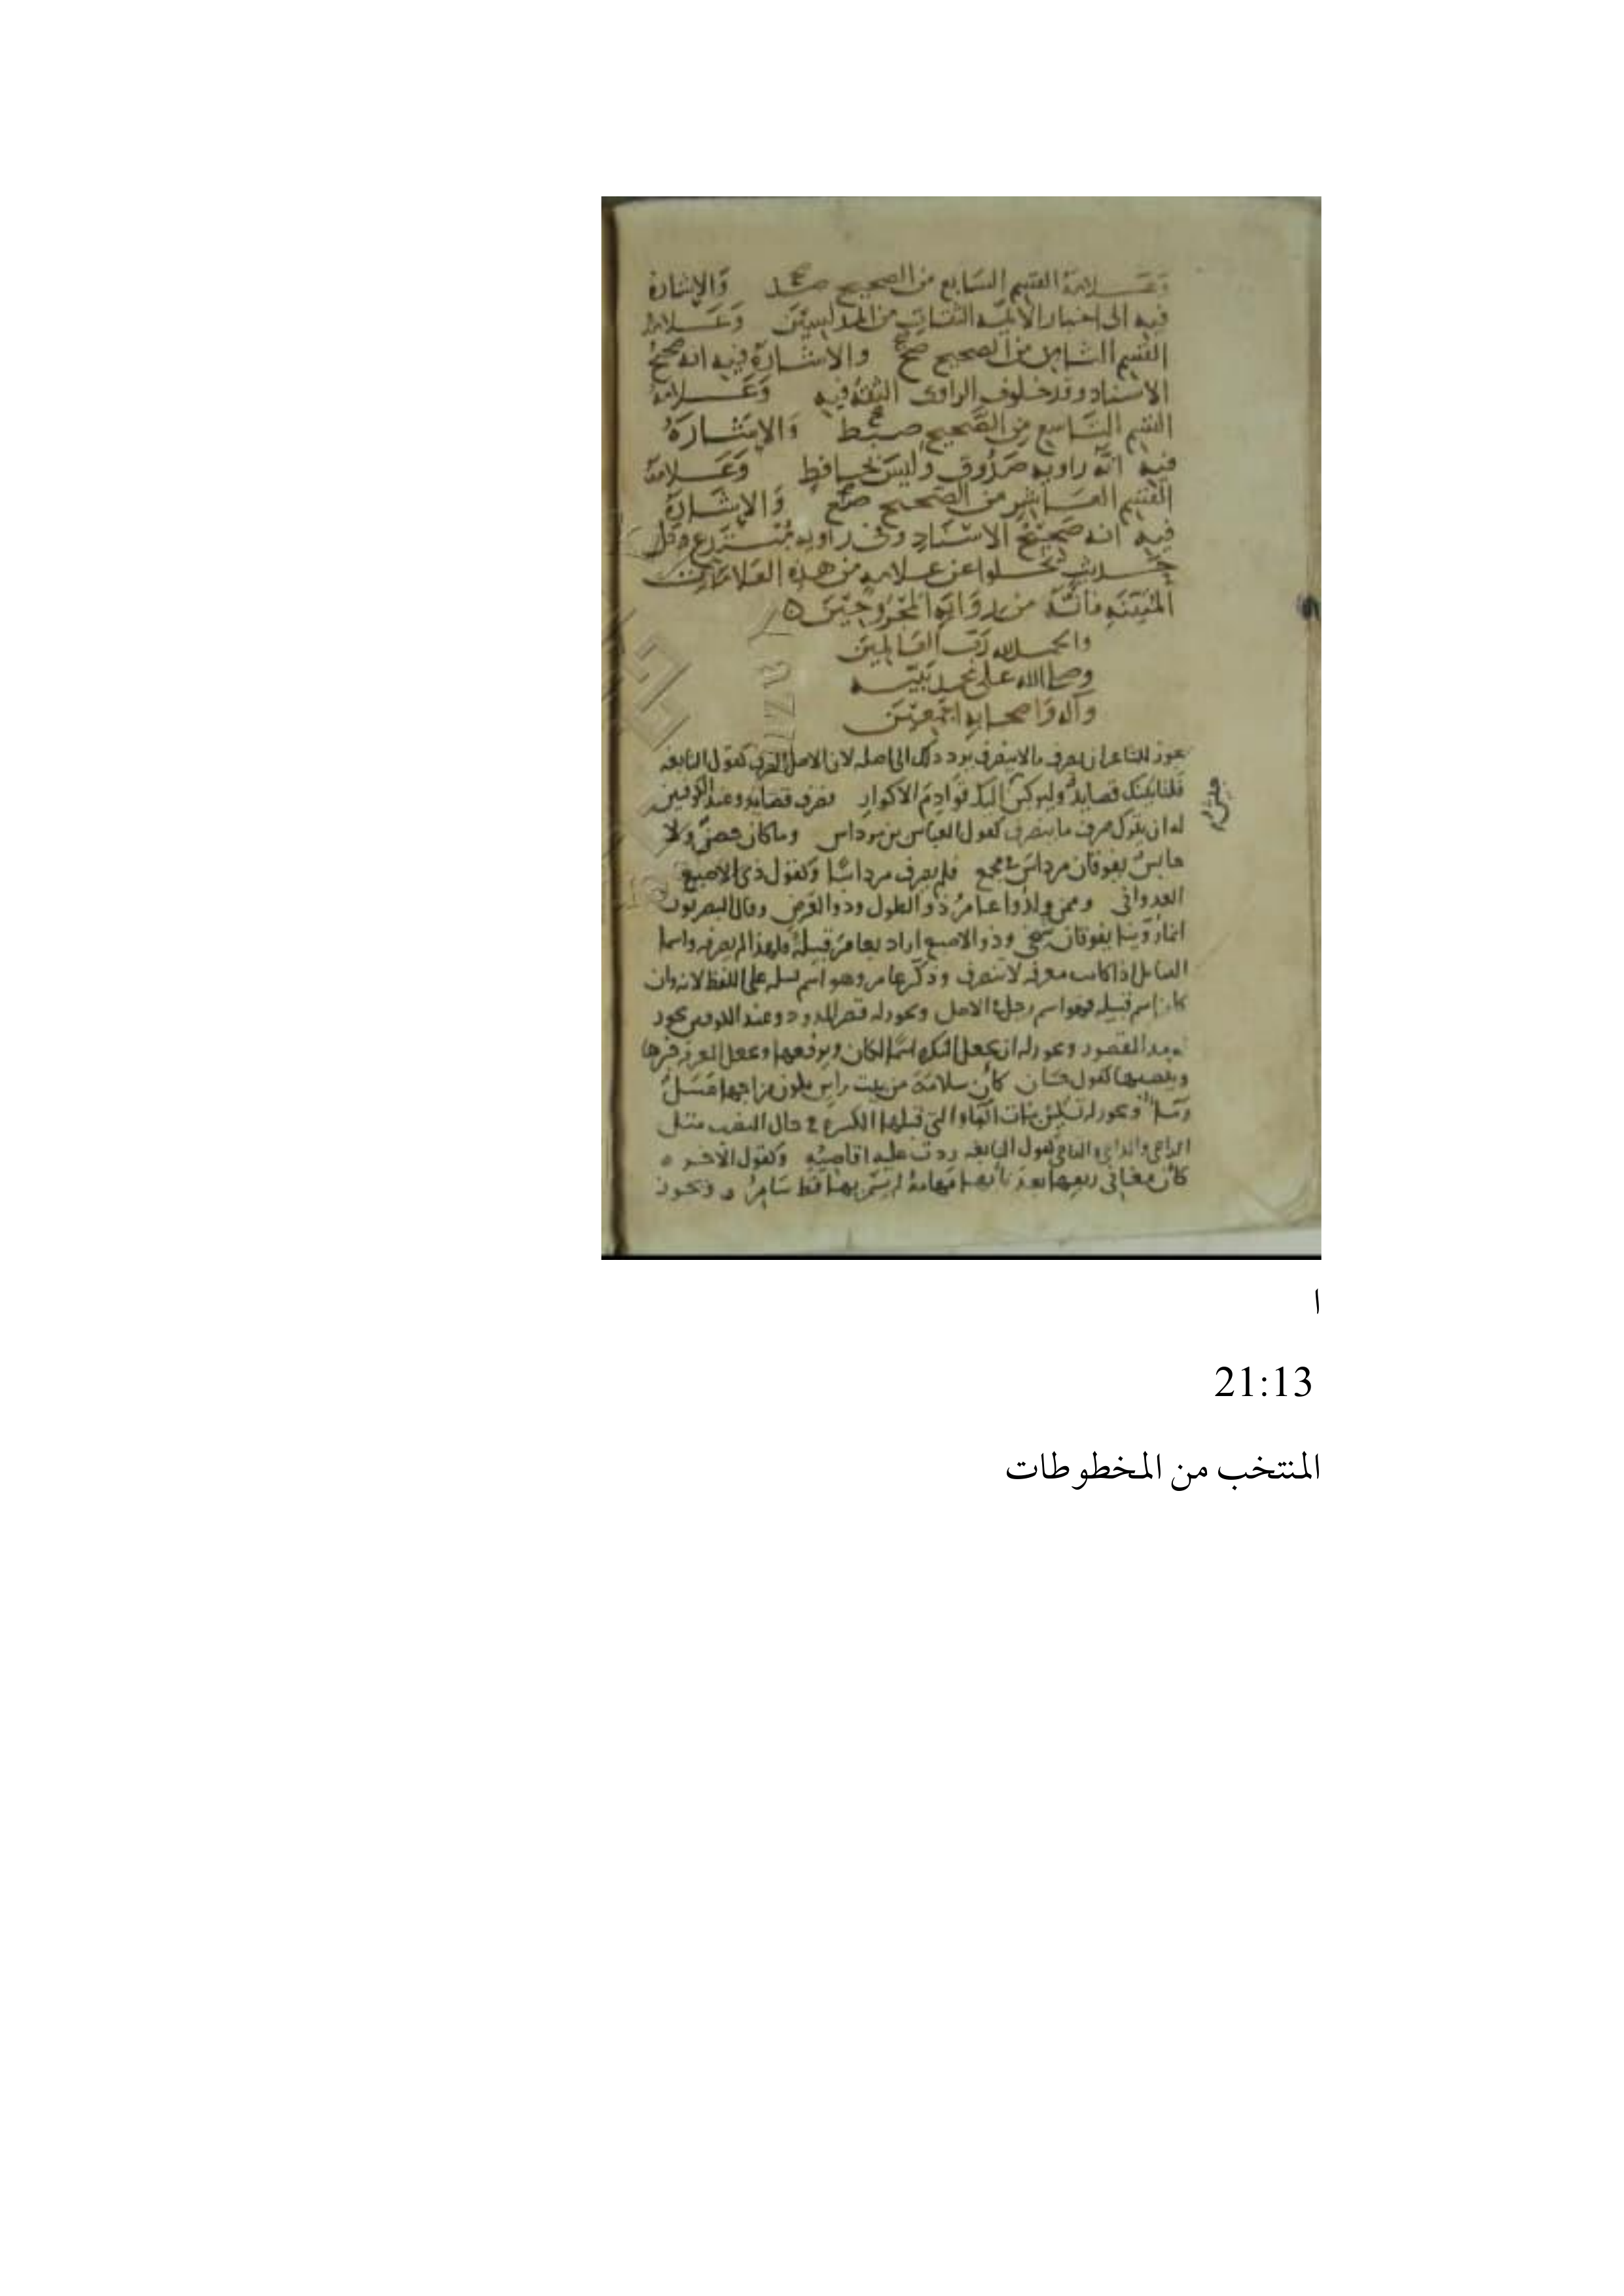 وَعَـلامة القسم السابع من الصحيح صحد وَالإشارة
فيه الى اخبار الائمّه الثقات من المدلسِيّنَ وَعَـلامة
القسم الثامن من الصحيح صحخ والاشارة فيه انه صحيح
الاسناد وقد خلوف الراوى الثقة فيه وَعَـلامة
القسم التاسع من الصَّحيح صحط وَالإشارَةُ
فيه انّه راويه صَدُوق وليسَ بحافظ وَعَـلامة
القسم العاشِر من الصحيح صحع وَالإشارَةُ
فيه انه صَحيْحُ الاسنادِ وفى راويه وكل
حديث تخلوا عن علامه من هذه العَلامات
المُبيّنَهِ فانّهُ من روَايَةِ المجرُوحيْنَ ه
والحمد لله رَبّ العَالمِينَ
وصلى الله على محمد نَبيّه
وآله وَاصحابه اجمَعيْنَ
جوز للشاعر ان يصرف ما لا ينصرف يرد ذلك الى اصله لان الاصل الصرف كقول النابغه
فلتاتينك قصايدٌ وليركبنْ اليك قوادِمَ الاكوارِ فصرف قصايد وعند الكوفيين
له ان يترك صرف ما ينصرف كقول العباس بن مرداس وما كان حصنٌ ولا
حابسٌ يفوقان مرداسَ فى مجمع فلم يصرف مرداسًا وكقول ذى الاصبع
العدوانى وممن ولدُوا عامرُ ذو الطول وذو العَرض وقال البصريون
انما روينا يفوقان شيخى وذو الاصبع اراد بعامرَ قبيلةً فلهذا لم يصرفه واسما
القبايل اذا كانت معرفه لا تنصرف وذكّر عامر وهو اسم قبيله على اللفظ لانه وان
كان اسم قبيله فهو اسم رجل فى الاصل ويجوز له قصر الممدود وعند الكوفيين يجوز
له مد المقصور ويجوز له ان يجعل النكره اسمًا لكان ويرفعها ويجعل المعرفه خبرها
وينصبها كقول حسان كأن سلافة من بيت راسٍ يكون مزاجَها عَسَلٌ
وَمَاءُ ويجوز له تسكين بنات الياء والتى قبلها الكسرة فى حال النصب مثل
الراعى والداعى والقاضى كقول النابغه ردت عليه اقاصيْهِ وكقول الاخر ه
ويجوز
ا
21:13
المنتخب من المخطوطات